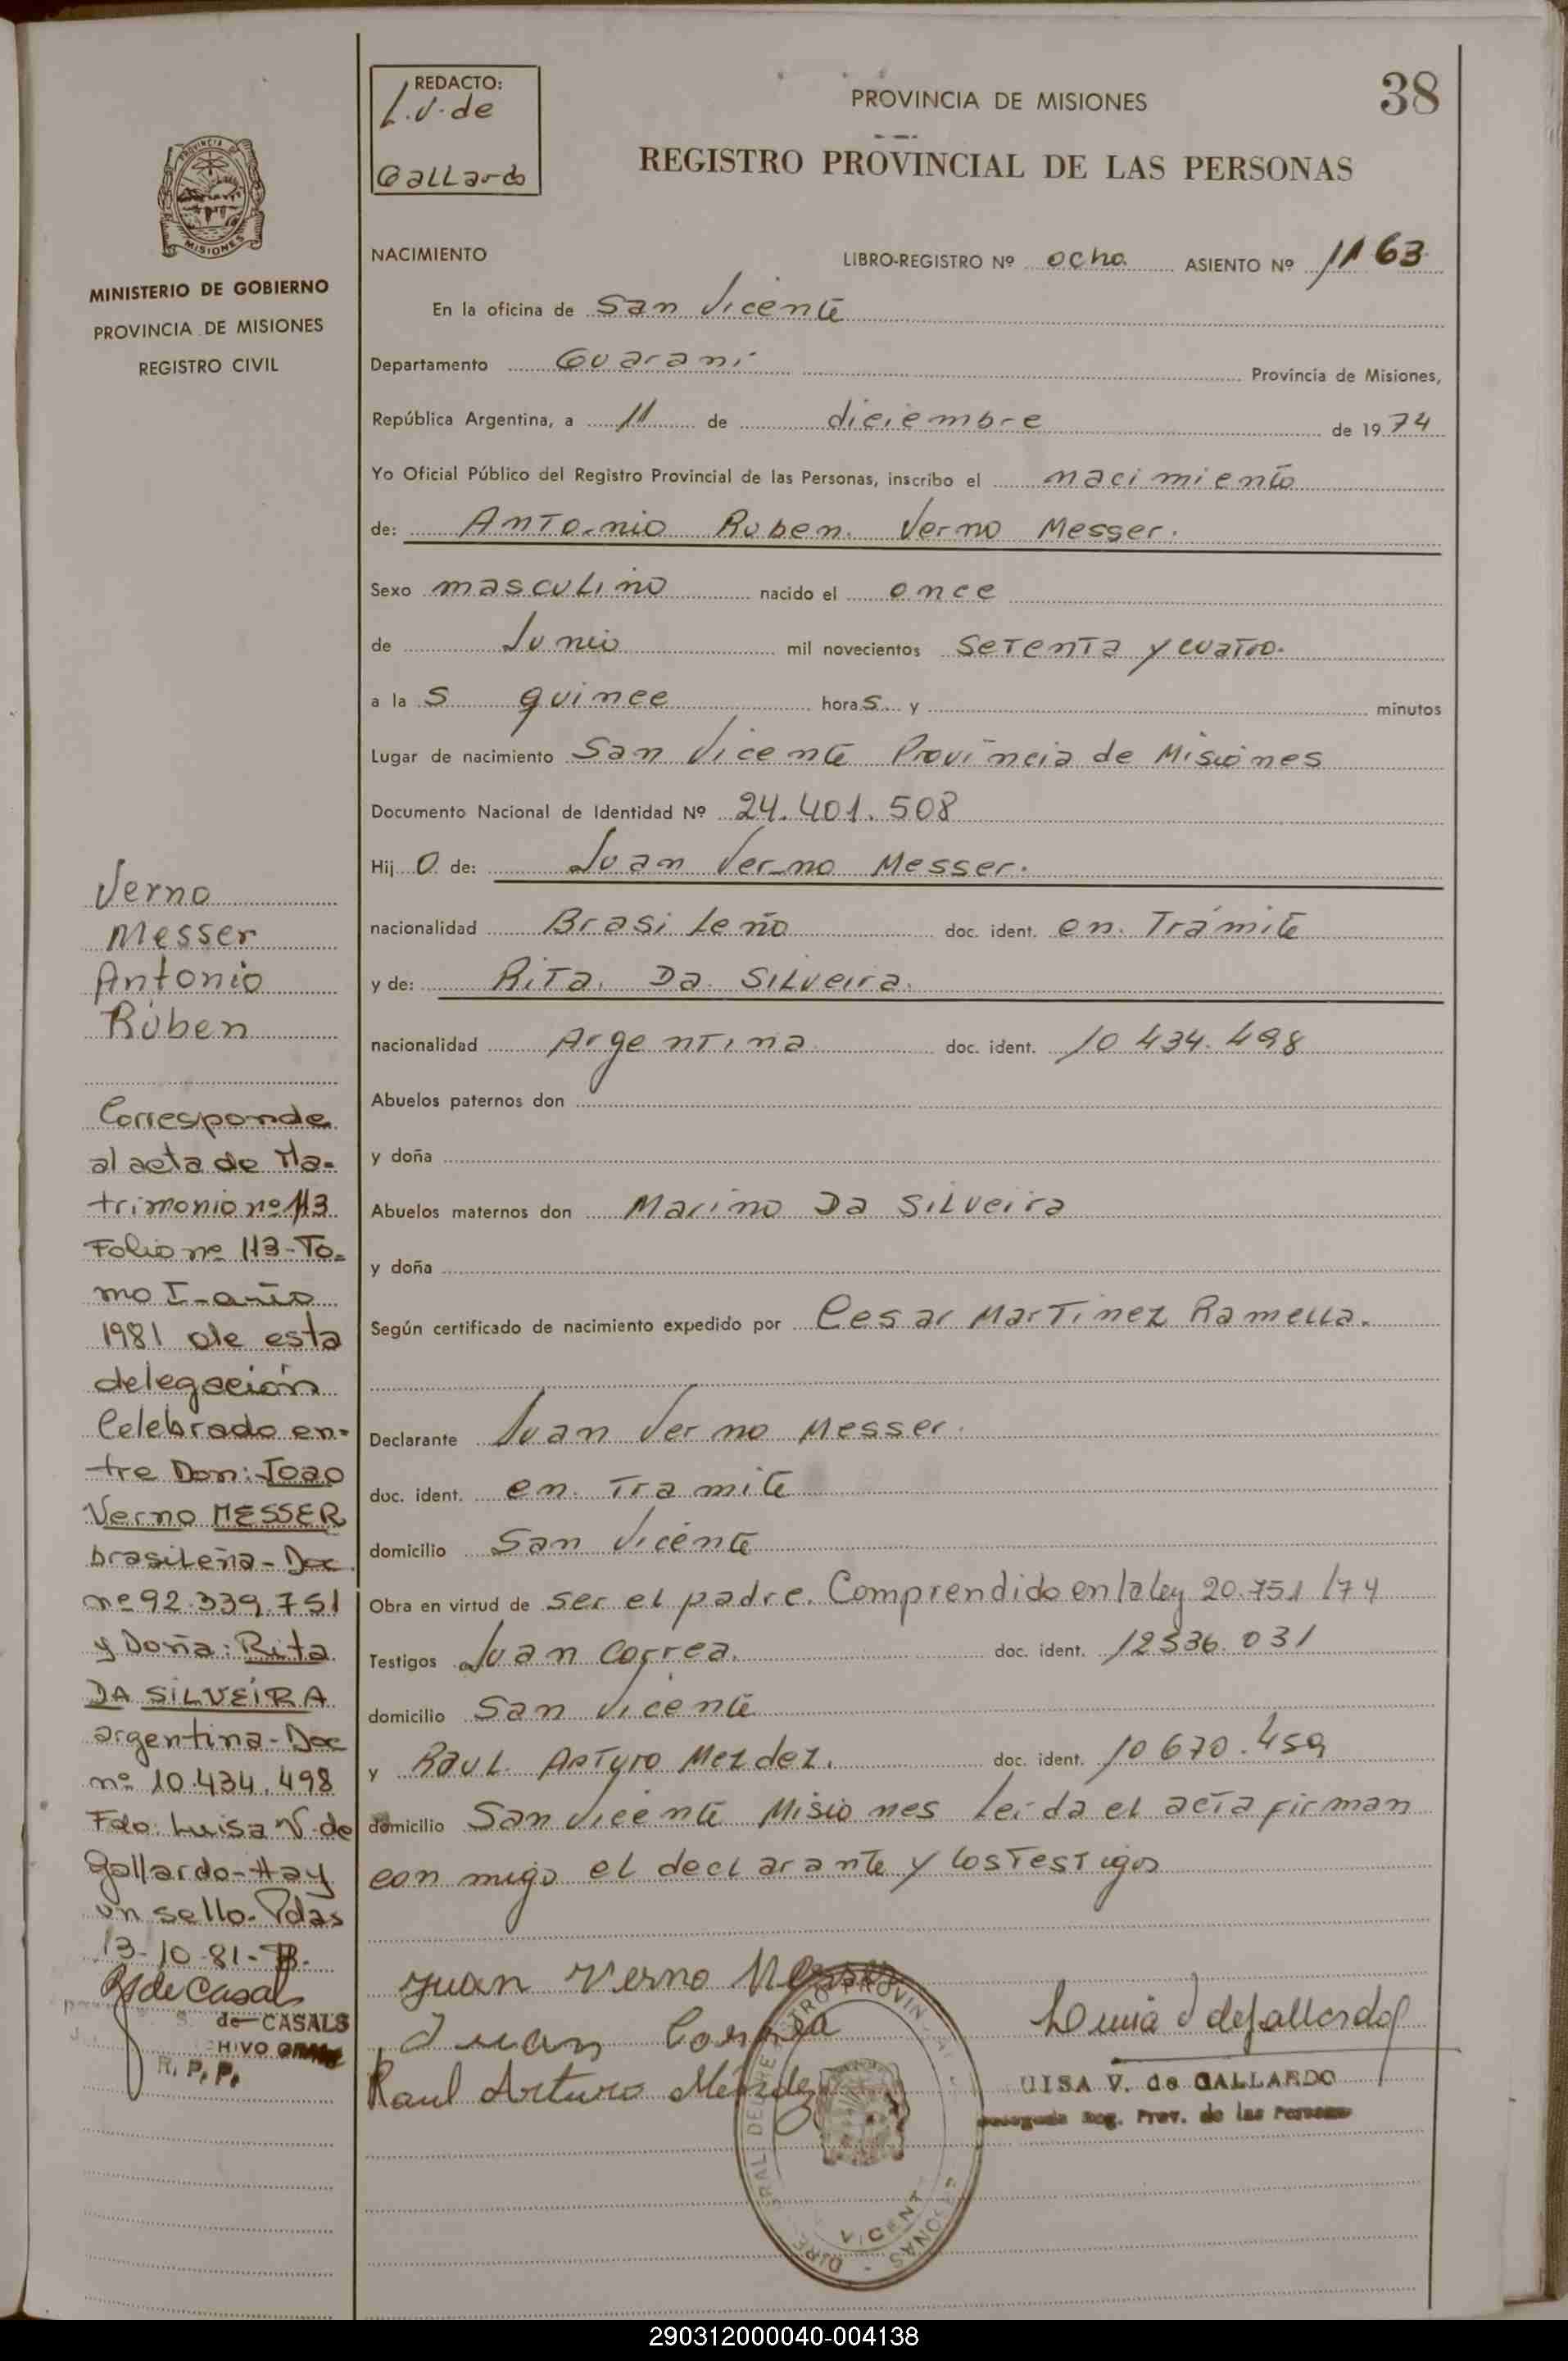 REDACTO:
L.V. de
Gallardo
PROVINCIA DE MISIONES
38
REGISTRO PROVINCIAL DE LAS PERSONAS
PROVINCIA DE
MISIONES
MINISTERIO DE GOBIERNO
PROVINCIA DE MISIONES
REGISTRO CIVIL
NACIMIENTO LIBRO-REGISTRO Nº ocho ASIENTO Nº 1163
En la oficina de San Vicente
Departamento Guarani Provincia de Misiones,
República Argentina, a 11 de diciembre de 1974
Yo Oficial Público del Registro Provincial de las Personas, inscribo el nacimiento
de: Antonio Ruben. Verno Messer.
Sexo masculino nacido el once
de Junio mil novecientos setenta y cuatro.
a la s quince horas y minutos
Lugar de nacimiento San Vicente Provincia de Misiones
Documento Nacional de Identidad Nº 24.401.508
Hijo de: Juan Verno Messer.
nacionalidad Brasileño doc. ident. en Trámite
y de: Rita. Da Silveira.
nacionalidad Argentina doc. ident. 10 434.498
Abuelos paternos don
y doña
Abuelos maternos don Marino Da Silveira
y doña
Según certificado de nacimiento expedido por Cesar Martinez Ramella.
Declarante Juan Verno Messer.
doc. ident. en Tramite
domicilio San Vicente
Obra en virtud de ser el padre. Comprendido en la ley 20.751/74
Testigos Juan Correa. doc. ident. 12336.031
domicilio San Vicente
y Raul. Arturo Mezdez. doc. ident. 10 670.459
domicilio San Vicente Misiones leída el acta firman
conmigo el declarante y los Testigos
Juan Verno Messer
Juan Correa
Raul Arturo Méndez
UISA V. de GALLARDO
Reg. Prov. de las Personas
VICENT
Verno
Messer
Antonio
Rúben
Corresponde
al acta de Ma-
trimonio nº 113
Folio nº 113-To-
mo I-año
1981 de esta
delegación
Celebrado en-
tre Don: Joao
Verno MESSER
brasileña-Doc
nº 92.339.751
y Doña: Rita
DA SILVEIRA
argentina-Doc
nº 10.434.498
Fdo: Luisa V. de
Gallardo-Hay
un sello. Pdas
13-10-81-
de CASALS
R.P.P.
290312000040-004138